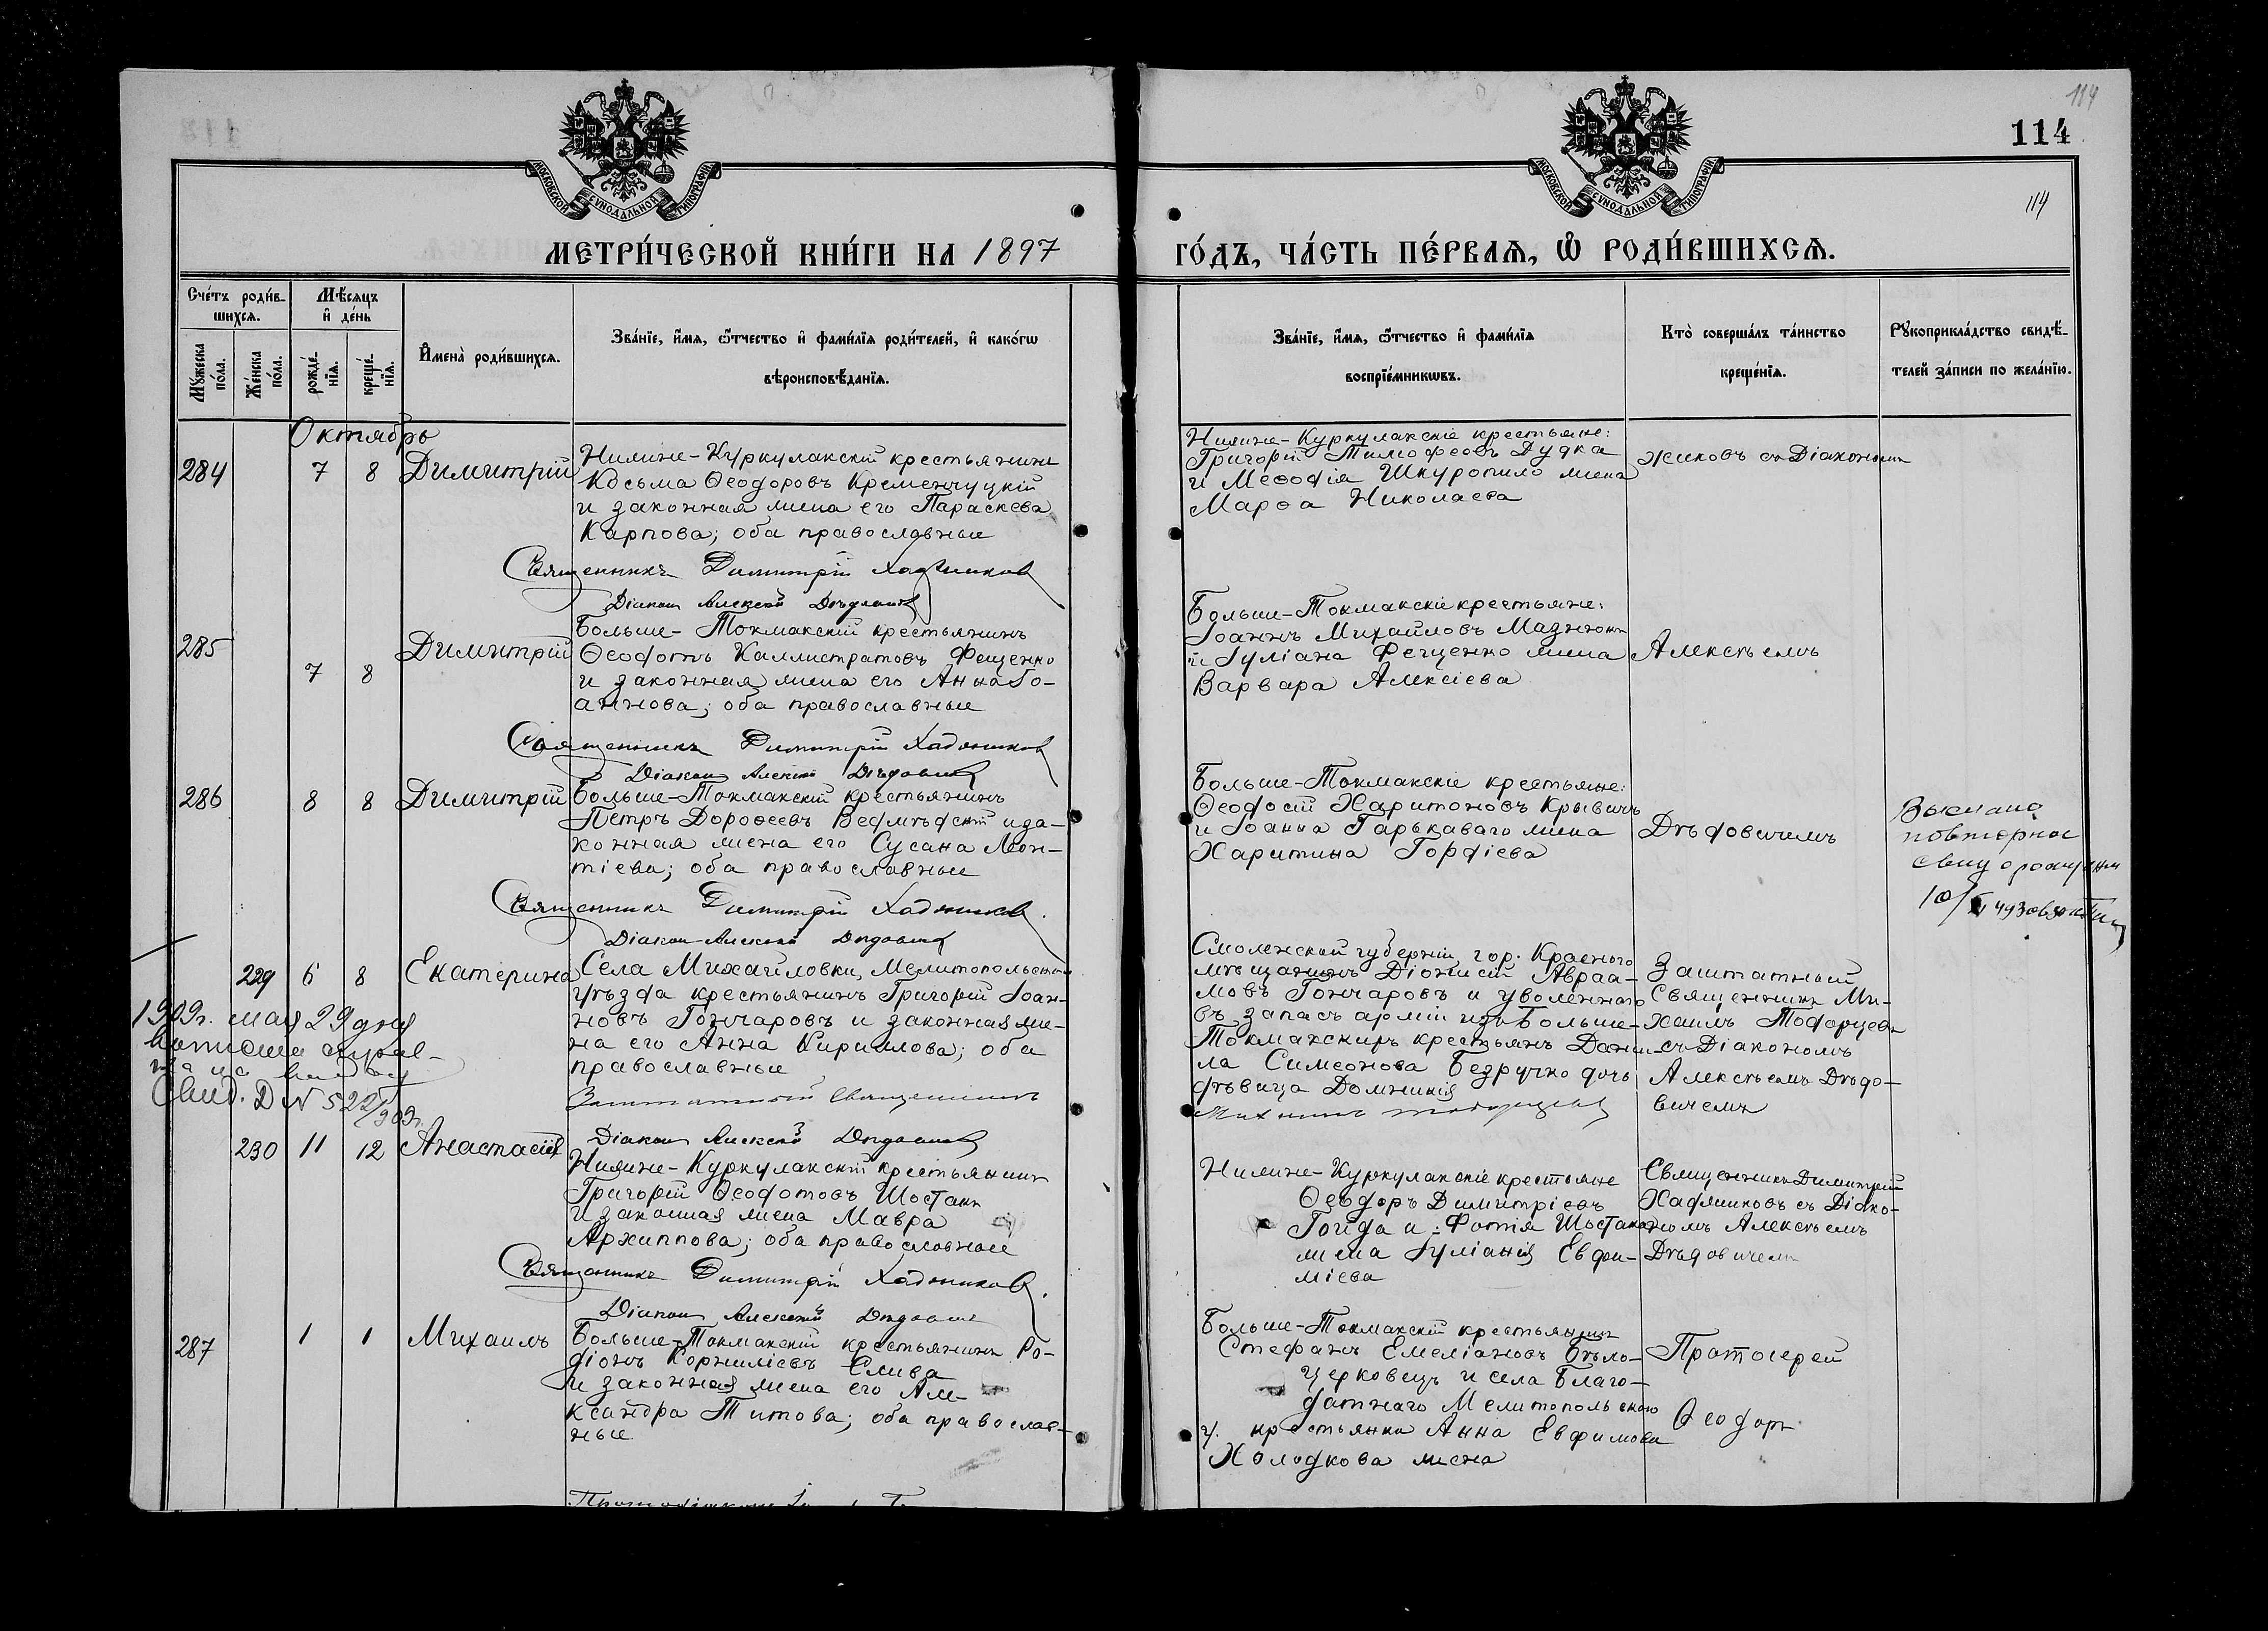 114
114
114
МОСКОВСКОЙ СѴНОДАЛЬНОЙ ТИПОГРАФІИ
МОСКОВСКОЙ СѴНОДАЛЬНОЙ ТИПОГРАФІИ
МЕТРИ́ЧЕСКОЙ КНИ́ГИ НА 1897
ГО́ДЪ, ЧА́СТЬ ПЕ́РВАѦ, Ѡ҆ РОДИ́ВШИХСѦ.
Сче́тъ роди́в-
шихсѧ.
Мѣ́сѧцъ
и҆ де́нь
Мꙋ́жеска по́ла.
Же́нска по́ла.
рожде́-
нїѧ.
креще́-
нїѧ.
И҆мена̀ роди́вшихсѧ.
Зва́нїе, и҆́мѧ, ѻ҆́тчество и҆ фами́лїѧ роди́телей, и҆ како́гѡ
вѣроисповѣ́данїѧ.
Зва́нїе, и҆́мѧ, ѻ҆́тчество и҆ фами́лїѧ
воспрїе́мникѡвъ.
Кто̀ соверша́лъ та́инство
креще́нїѧ.
Рꙋкоприкла́дство свидѣ́-
телей за́писи по жела́нїю.
Октябрь
284 7 8 Димитрій
Нижне-Куркулакскій крестьянинъ
Косьма Ѳеодоровъ Кременчуцкій
и законная жена его Параскева
Карпова; оба православные
Священникъ Димитрій Хаджиновъ
Діаконъ Алексій Дѣдовичъ
Нижне-Куркулакскіе крестьяне:
Григорій Тимоѳеевъ Дудка
и Меѳодія Шкуропило жена
Марѳа Николаева
съ Діакономъ
285 7 8 Димитрій
Больше-Токмакскій крестьянинъ
Ѳеодотъ Каллистратовъ Фещенко
и законная жена его Анна Іо-
аннова; оба православные
Священникъ Димитрій
Діаконъ Алексій Дѣдовичъ
Больше-Токмакскіе крестьяне:
Іоаннъ Михайловъ
и Іуліана Фещенко жена
Варвара Алексіева
Алексѣемъ
286 8 8 Димитрій
Больше-Токмакскій крестьянинъ
Петръ Дороѳеевъ и за-
конная жена его Сусана Леон-
тіева; оба православные
Священникъ Димитрій
Діаконъ Алексій Дѣдовичъ
Больше-Токмакскіе крестьяне:
Ѳеодосій Харитоновъ Крывичъ
и Іоанна Гарькаваго жена
Харитина Гордіева
Дѣдовичемъ
повторное
229 6 8 Екатерина
Села Михайловки, Мелитопольскаго
уѣзда крестьянинъ Григорій Іоан-
новъ Гончаровъ и законная же-
на его Анна Кириллова; оба
православные
Заштатный Священникъ
Діаконъ Алексій Дѣдовичъ
Смоленской губерніи, гор. Краснаго
мѣщанинъ Діонисій Авраа-
мовъ Гончаровъ и уволеннаго
въ запасъ арміи изъ Больше-
Токмакскихъ крестьянъ Дании-
ла Симеонова Безручко дочь
дѣвица Домникія
Заштатный
Священникъ Ми-
хаилъ
съ Діакономъ
Алексѣемъ Дѣдо-
вичемъ
1909г. мая 29 дня
230 11 12 Анастасія
Нижне-Куркулакскій крестьянинъ
Григорій Ѳеодотовъ Шостакъ
и законная жена Мавра
Архиппова; оба православные
Священникъ Димитрій
Діаконъ Алексій Дѣдовичъ
Нижне-Куркулакскіе крестьяне
Ѳеодоръ Димитріевъ
Гойда и Фотія Шостака
жена Іуліанія Евфи-
міева
Священникъ Димитрій
съ Діако-
номъ Алексѣемъ
Дѣдовичемъ
287 1 1 Михаилъ
Больше-Токмакскій крестьянинъ Ро-
діонъ Корниліевъ Слива
и законная жена его Але-
ксандра Титова; оба православ-
ные
Больше-Токмакскій крестьянинъ
Стефанъ Емеліановъ Бѣло-
церковецъ и села Благо-
датнаго Мелитопольскаго
у. крестьянка Анна Евфимова
Холодкова жена
Протоіерей
Ѳеодоръ